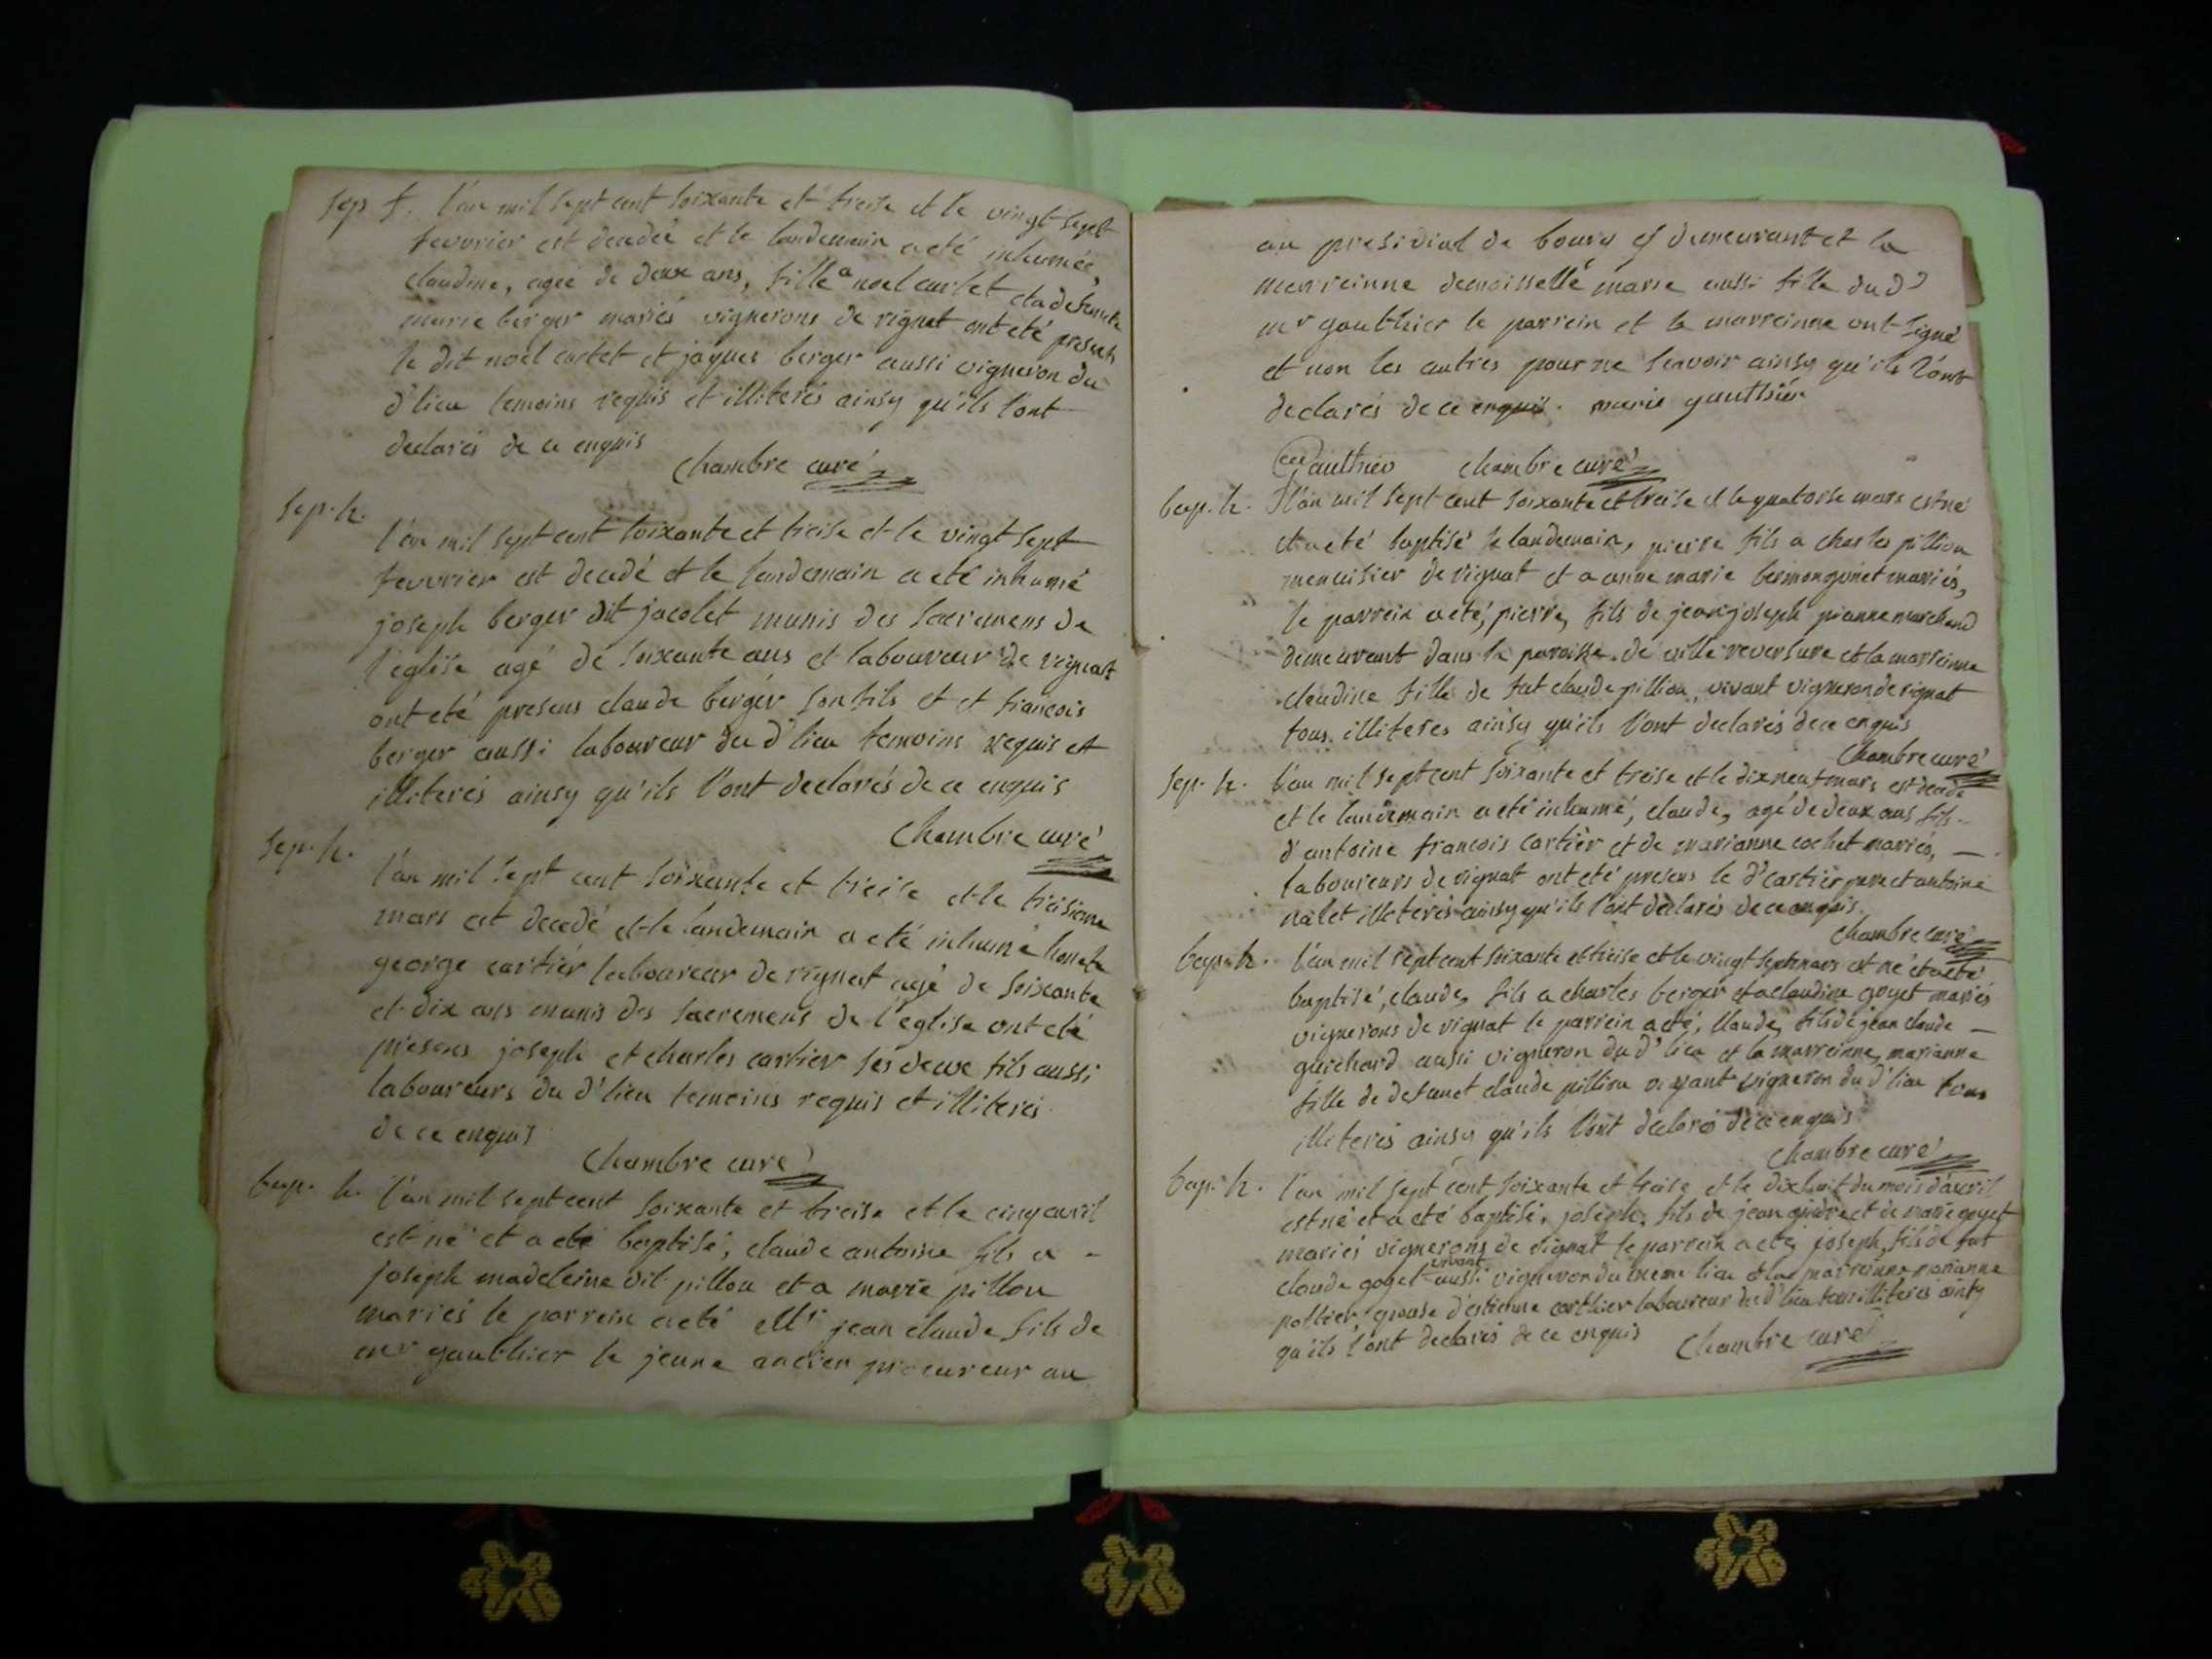 sep f. l'an mil sept cent soixante et treise et le vingt sept
fevvrier est decedeé et le landemain a eté inhumeé,
claudine, ageé de deux ans, fille a noel carlet et a defunte
marie berger mariés vignerons de rignat ont eté presents
le dit noel carlet et jaques berger aussi vigneron du
d' lieu temoins requis et illiterés ainsy qu'ils l'ont
declarés de ce enquis
Chambre curé
sep. h.
l'an mil sept cent soixante et treise et le vingt sept
fevvrier est decedé et le landemain a eté inhumé
joseph berger dit jacolet munis des sacremens de
l'eglise agé de soixante ans et laboureur de rignat
ont eté presens claude berger son fils et et francois
berger aussi laboureur du d' lieu temoins requis et
illiterés ainsy qu'ils l'ont declarés de ce enquis
Chambre curé
sep. h.
l'an mil sept cent soixante et treise et le treisieme
mars est decedé et le landemain a eté inhumé honete
george cartier laboureur de rignat agé de soixante
et dix ans munis des sacremens de l'eglise ont eté
presens joseph et charles cartier ses deux fils aussi
laboureurs du d' lieu temoins requis et illiterés
de ce enquis
Chambre curé
bap. h. l'an mil sept cent soixante et treise et le cinq avril
est né et a eté baptisé, claude antoine fils a
joseph madeleine dit pillon et a marie pillon
mariés le parrein a eté Mr jean claude fils de
mr gauthier le jeune ancien procureur au
au presidial de bourg y demeurant et la
marreinne demoisselle marie aussi fille du d'
mr gauthier le parrein et la marreinne ont signé
et non les autres pour ne scavoir ainsy qu'ils l'ont
declarés de ce enquis. marie gauthier
Gauthier Chambre curé
bap. h. l'an mil sept cent soixante et treise et le quatorse mars est né
et a eté baptisé le landemain, pierre fils a charles pillion
menuisier de rignat et a anne marie mariés,
le parrein a eté, pierre, fils de jean joseph pianne marchand
demeurant dans la paroisse de ville reversure et la marreinne
claudine fille de fut claude pillion, vivant vigneron de rignat
tous illiteres ainsy qu'ils l'ont declarés de ce enquis
Chambre curé
sep. h. l'an mil sept cent soixante et treise et le dix neuf mars est decedé
et le landemain a eté inhumé, claude, agé de deux ans fils
d'antoine francois cartier et de marianne cochet mariés,
laboureurs de rignat ont eté presens le d' cartier pere et antoine
nalet illeterés ainsy qu'ils l'ont declarés de ce enquis.
Chambre curé
bap. h. l'an mil sept cent soixante et treise et le vingt sept mars est né et a eté
baptisé, claude, fils a charles berger et a claudine goyet mariés
vignerons de rignat le parrein a eté, claude, fils de jean claude
guichard aussi vigneron du d' lieu et la marreinne, marianne
fille de defunct claude pillion vivant vigneron du d' lieu tous
illiterés ainsy qu'ils l'ont declarés de ce enquis
Chambre curé
bap. h. l'an mil sept cent soixante et treise et le dix huit du mois d'avril
est né et a eté baptisé, joseph, fils de jean et de marie goyet
mariés vignerons de rignat le parrein a eté, joseph, fils de fut
vivant
claude goyet aussi vigneron du meme lieu et la marreinne marianne
poltier, epouse d'estienne carthier laboureur du d' lieu tous illiterés ainsy
qu'ils l'ont declarés de ce enquis Chambre curé